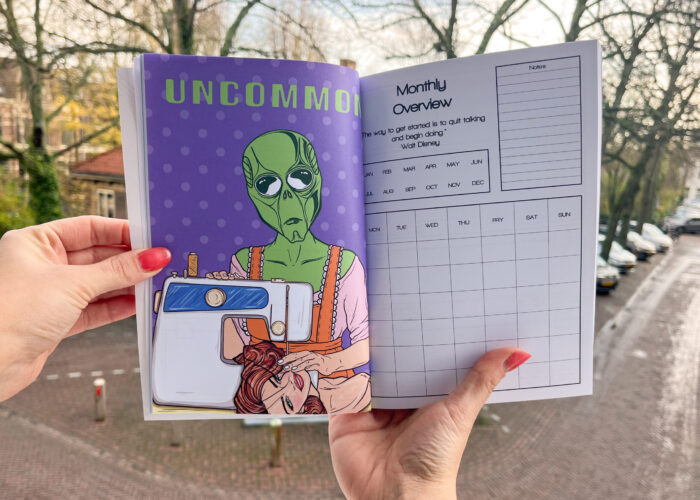 UNCOMMON
Monthly
Overview
"The way to get started is to quit talking
and begin doing."
Walt Disney
JAN FEB MAR APR MAY JUN
JUL AUG SEP OCT NOV DEC
Notes
MON TUE WED THU FRI SAT SUN